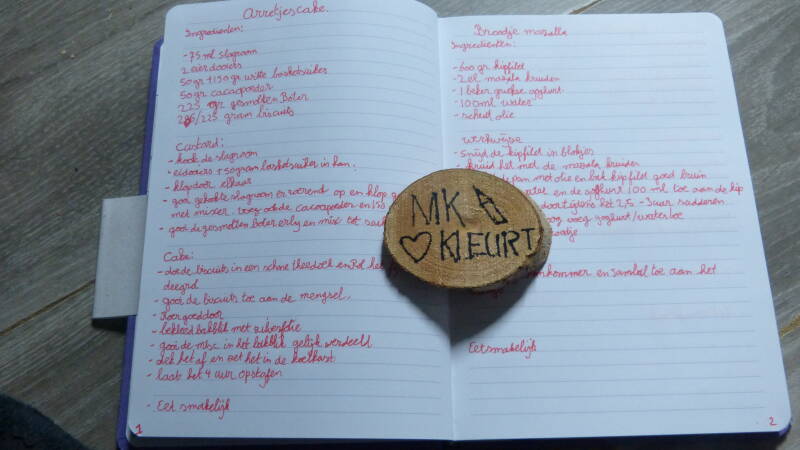 Arretjescake.
Ingredienten:
- 75 ml slagroom
2 eierdooiers
50 gr + 150 gr witte basterdsuiker
50 gr cacaopoeder
225 gr gesmolten Boter
/225 gram biscuits
Custard:
- kook de slagroom
- eidooiers + 50 gram basterdsuiker in kan.
- klop door elkaar
- gooi gekookte slagroom er roerend op en klop
met mixer. voeg ook de cacaopoeder en 150
- gooi de gesmolten Boter erbij en mix tot
Cake:
- doe de biscuits in een schone theedoek en Rol
deegrol
- gooi de biscuits toe aan de mengsel.
- roer goed door
- bekleed bakblik met
- gooi de mix in het bakblik gelijk verdeeld
- dek het af en zet het in de koelkast
- laat het 4 uur opstijfen
- Eet smakelijk
1
Broodje masala
Ingredienten:
- 600 gr kipfilet
- 2 el masala kruiden
- 1 beker griekse yoghurt
- 100 ml water
- scheut olie
werkwijze
- Snijd de kipfilet in blokjes
- kruid het met de masala kruiden
de pan met olie en bak kipfilet goed bruin
en de yoghurt 100 ml toe aan de kip
het 2,5 - 3 uur sudderen
voeg yoghurt/water toe
en sambal toe aan het
Eetsmakelijk
2
MK
♡ KLEURT